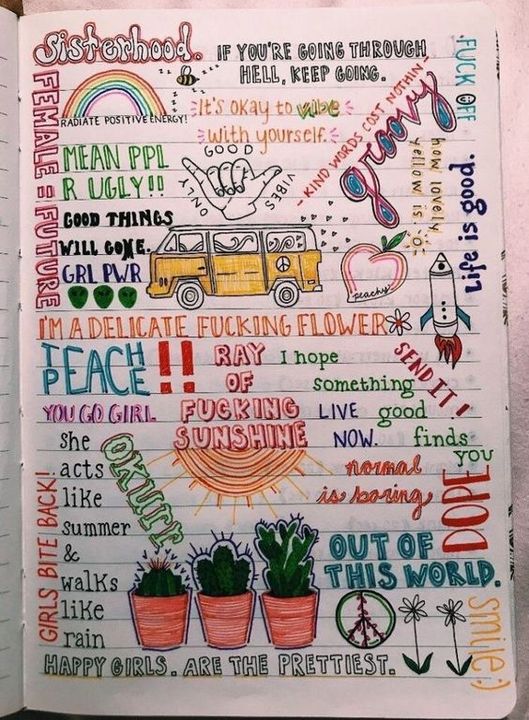 Sisterhood.
IF YOU'RE GOING THROUGH
HELL, KEEP GOING.
FUCK OFF
FEMALE = FUTURE
RADIATE POSITIVE ENERGY!
It's okay to vibe
with yourself.
- KIND WORDS COST NOTHIN -
groovy
how lovely
yellow is
Life is good.
MEAN PPL
R UGLY!!
GOOD
ONLY
VIBES
GOOD THINGS
WILL COME.
GRL PWR
peachy
I'M A DELICATE FUCKING FLOWER
TEACH
PEACE
!!
RAY
OF
FUCKING
SUNSHINE
I hope
something
good
finds
you
SEND IT!
YOU GO GIRL
LIVE
NOW.
she
acts
like
summer
&
walks
like
rain
OKURR
normal
is boring
DOPE
GIRLS BITE BACK!
OUT OF
THIS WORLD.
smile:)
HAPPY GIRLS. ARE THE PRETTIEST.